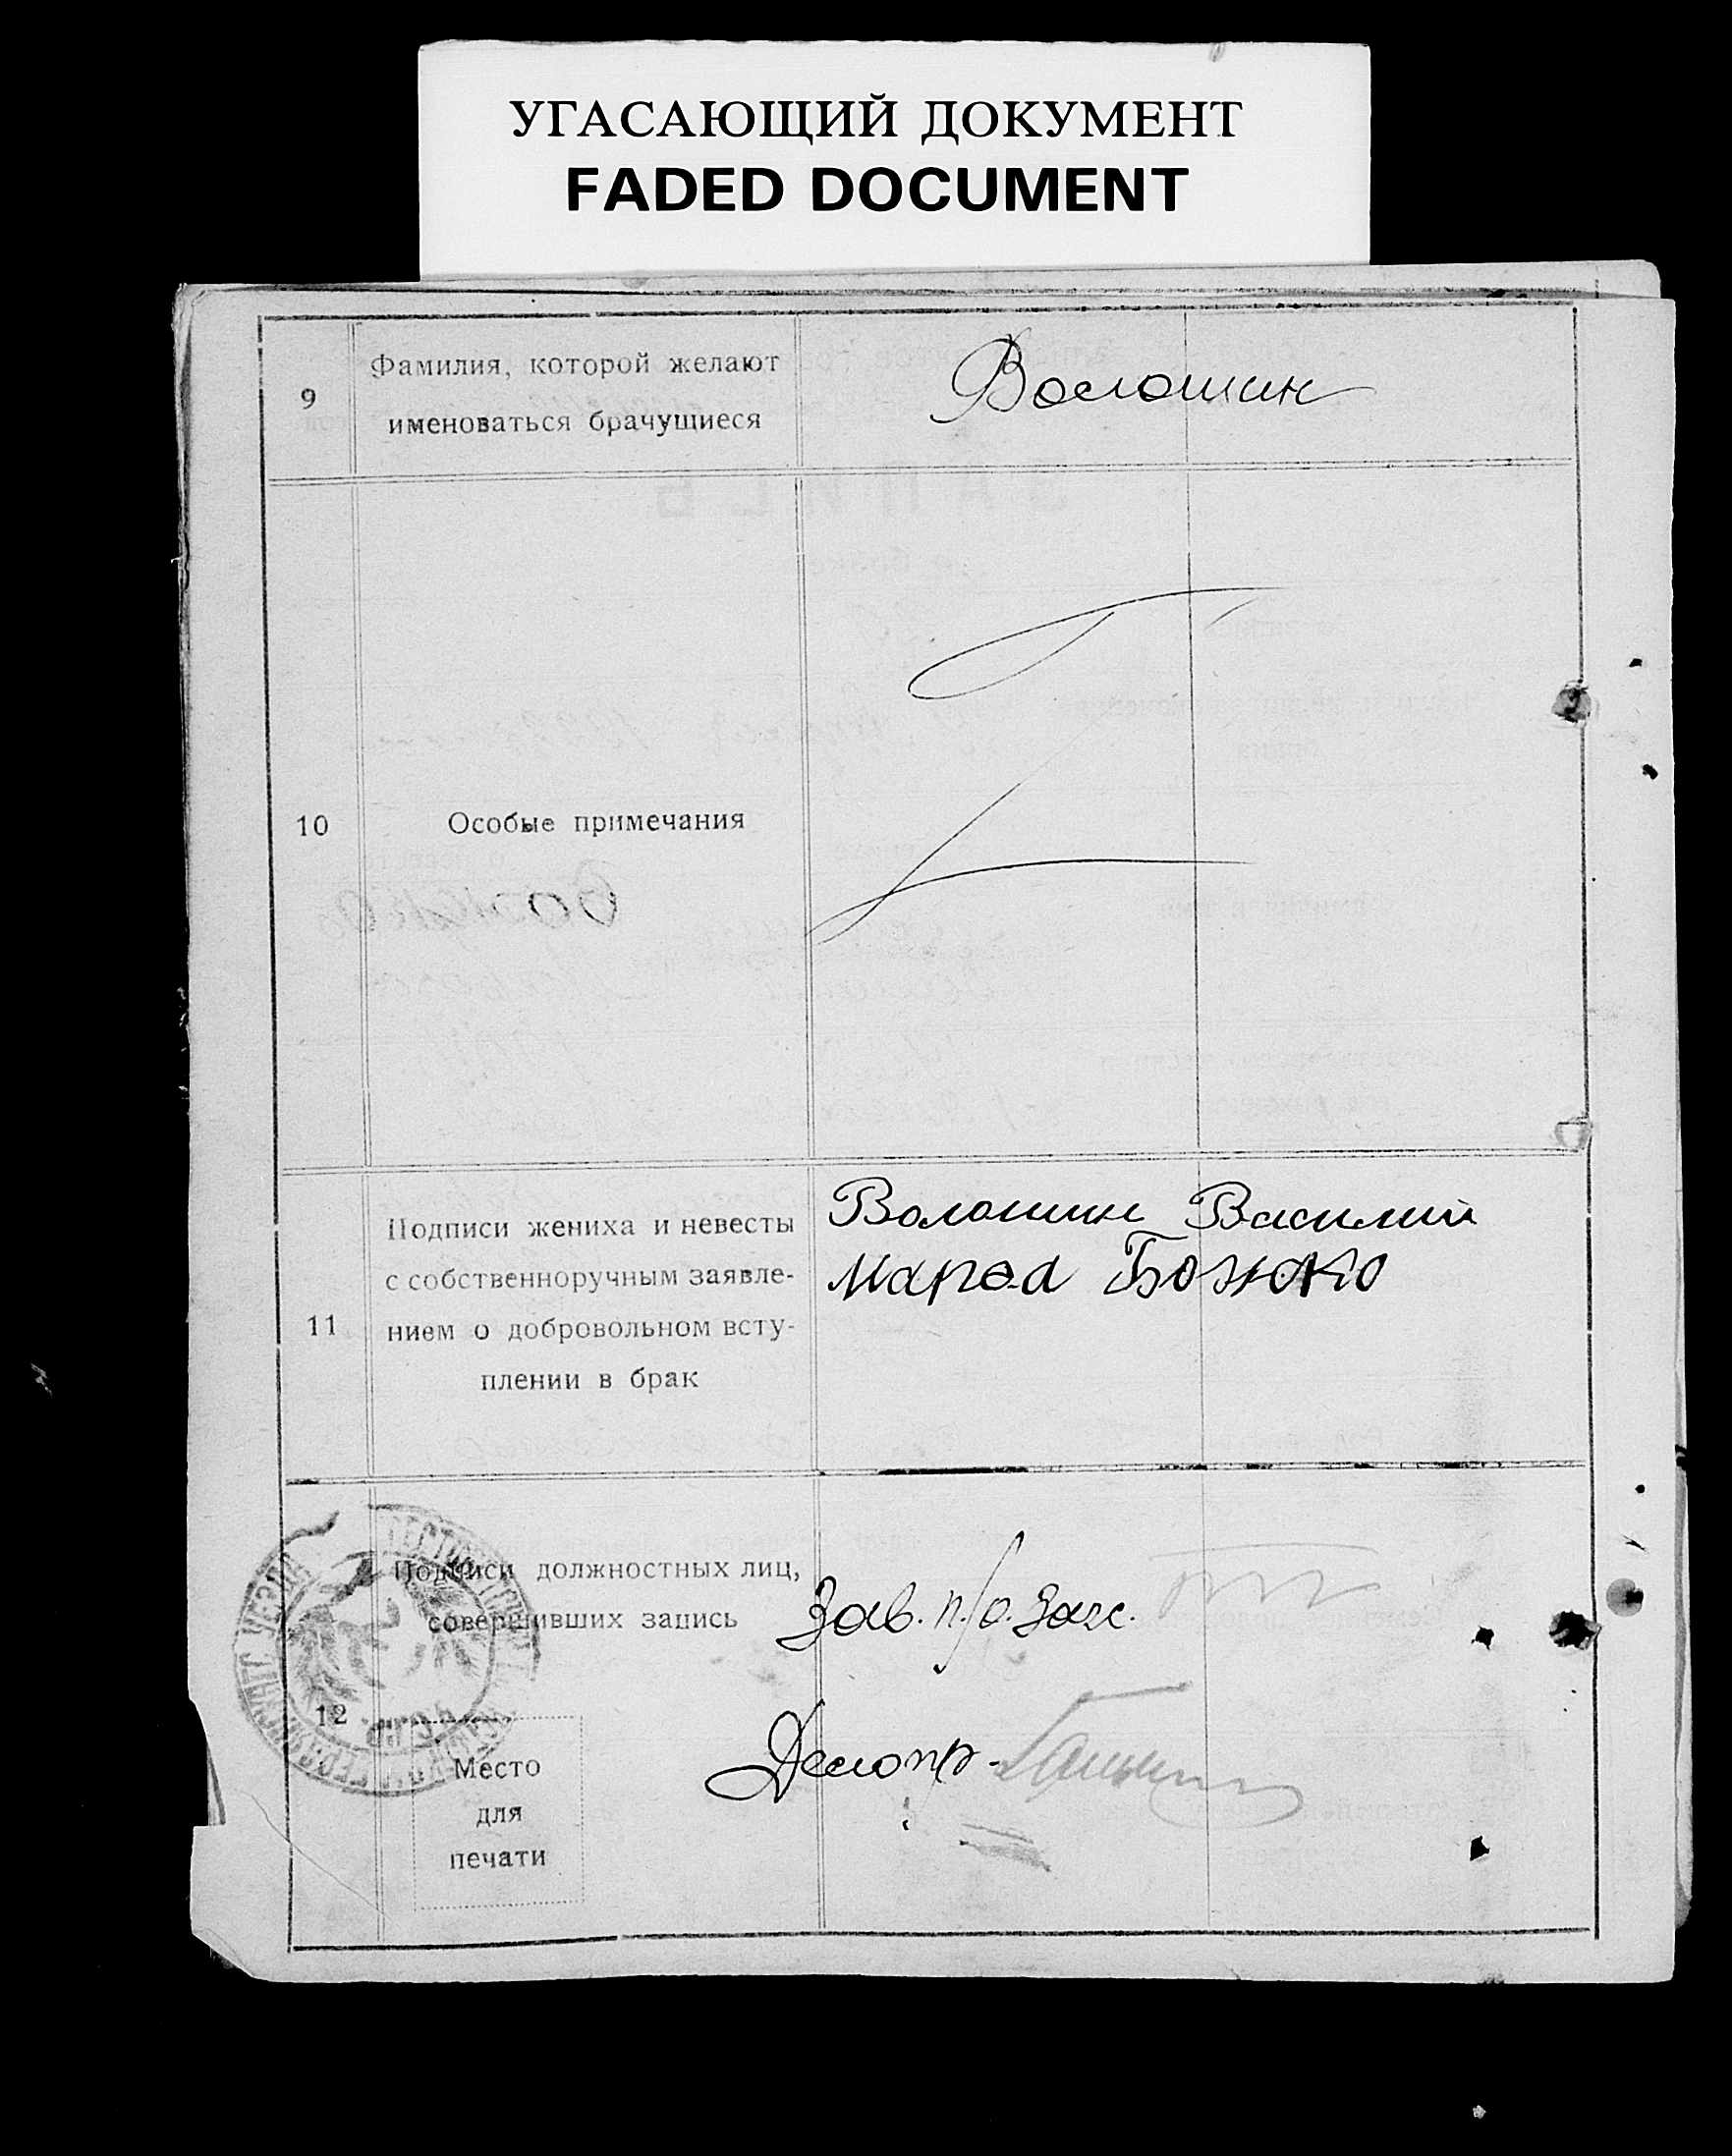 УГАСАЮЩИЙ ДОКУМЕНТ
FADED DOCUMENT
9
Фамилия, которой желают
именоваться брачущиеся
Волошин
10
Особые примечания
11
Подписи жениха и невесты
с собственноручным заявле-
нием о добровольном всту-
плении в брак
Волошин Василий
Божко
12
Подписи должностных лиц,
совершивших запись
Зав. п/о. Загс.
Делопр-
Место
для
печати